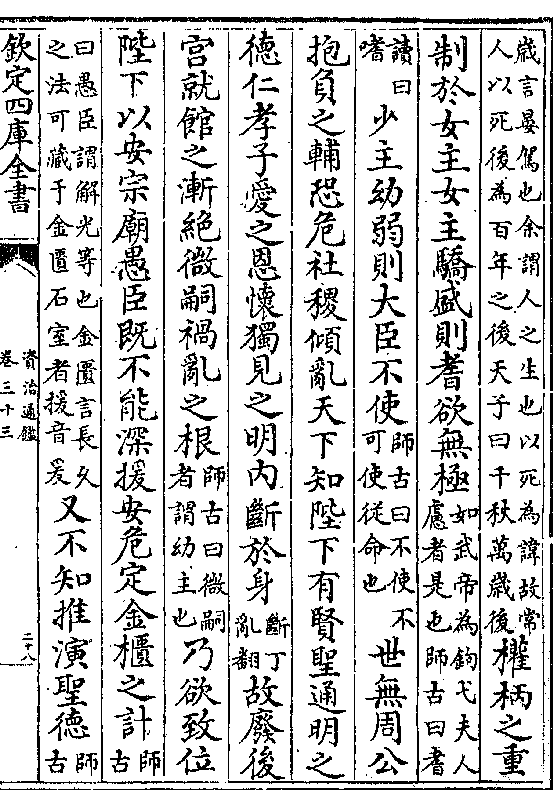 歲言晏駕也余謂人之生也以死為諱故常
人以死後為百年之後天子曰千秋萬歲後
權柄之重
制於女主女主驕盛則耆欲無極
如武帝為鉤弋夫人
慮者是也師古曰耆
讀曰
嗜
少主幼弱則大臣不使
師古曰不使不
可使從命也
世無周公
抱負之輔恐危社稷傾亂天下知陛下有賢聖通明之
德仁孝子愛之恩懷獨見之明內斷於身
斷丁
亂翻
故廢後
宮就館之漸絶微嗣禍亂之根
師古曰微嗣
者謂幼主也
乃欲致位
陛下以安宗廟愚臣既不能深援安危定金櫃之計
師
古
曰愚臣謂解光等也金匱言長久
之法可藏于金匱石室者援音爰
又不知推演聖德
師
古
欽定四庫全書
資治通鑑
卷三十三
二十八